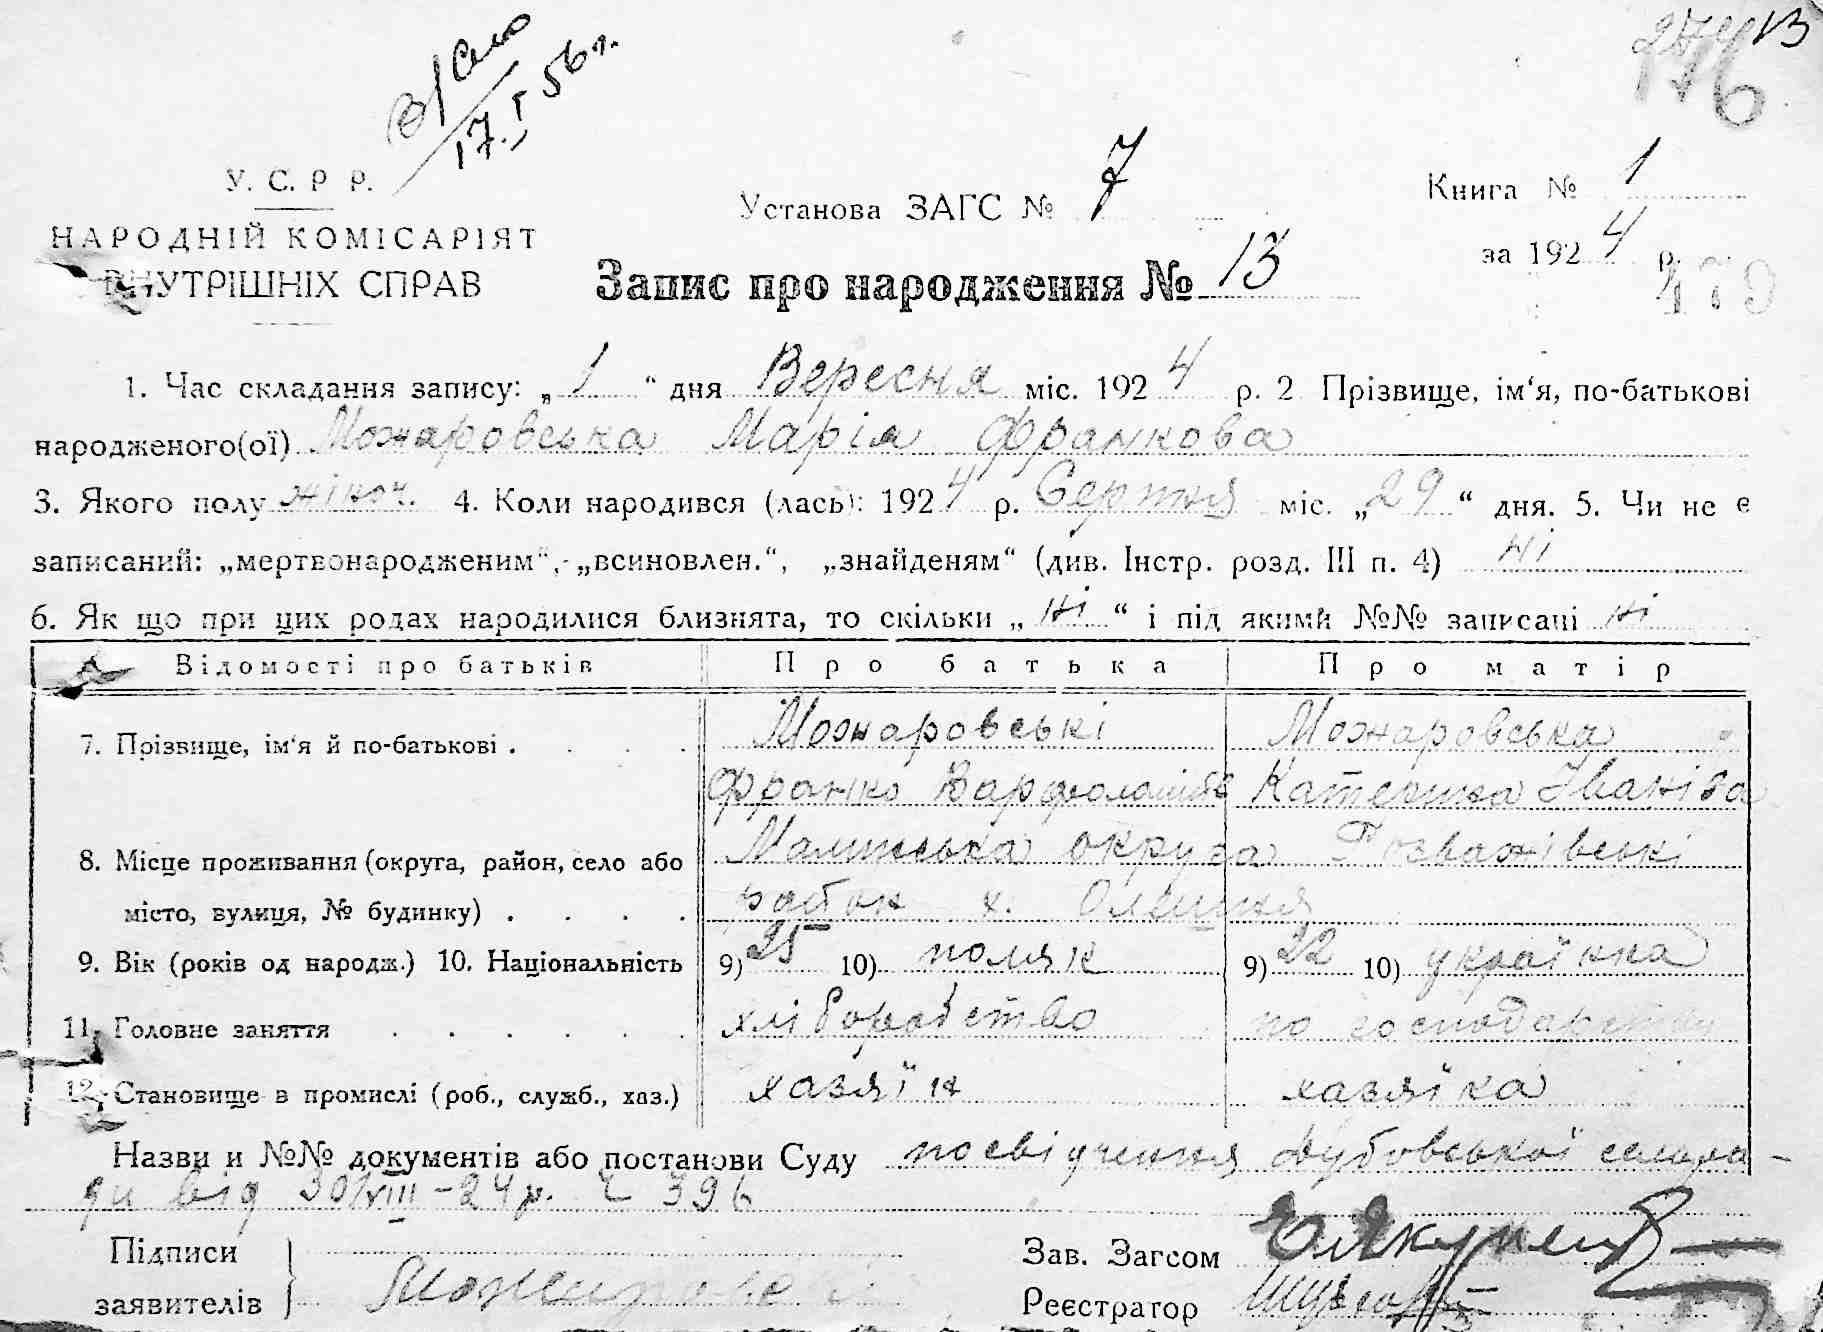 В/село
17. I 56 г.
13
176
У. С. Р Р.
НАРОДНІЙ КОМІСАРІЯТ
ВНУТРІШНІХ СПРАВ
Установа ЗАГС № 7
Книга № 1
за 1924 р.
479
Запис про народження № 13
1. Час складання запису: „1“ дня Вересня міс. 1924 р. 2 Прізвище, ім‘я, по-батькові
народженого(ої) Можаровська Марія Франкова
3. Якого полу жіноч. 4. Коли народився (лась): 1924 р. Серпня міс. „29“ дня. 5. Чи не є
записаний: „мертвонародженим“, „всиновлен.“, „знайденям“ (див. Інстр. розд. III п. 4) ні
6. Як що при цих родах народилися близнята, то скільки „ні“ і під якими №№ записані ні
Відомості про батьків Про батька Про матір
7. Прізвище, ім‘я й по-батькові . . . . Можаровські Можаровська
Франко Катерина Іванівна
8. Місце проживання (округа, район, село або Малинська округа Розважівські
місто, вулиця, № будинку) . . . . район х.
9. Вік (років од народж.) 10. Національність 9) 25 10) поляк 9) 22 10) українка
11. Головне заняття . . . . . . хліборобство по господарству
12. Становище в промислі (роб., служб., хаз.) хазяїн хазяїка
Назви и №№ документів або постанови Суду посвідчення Дубовської сельра-
ди від 30/VIII-24 р. Ч 396
Підписи
заявителів Можаровскі
Зав. Загсом
Реєстратор